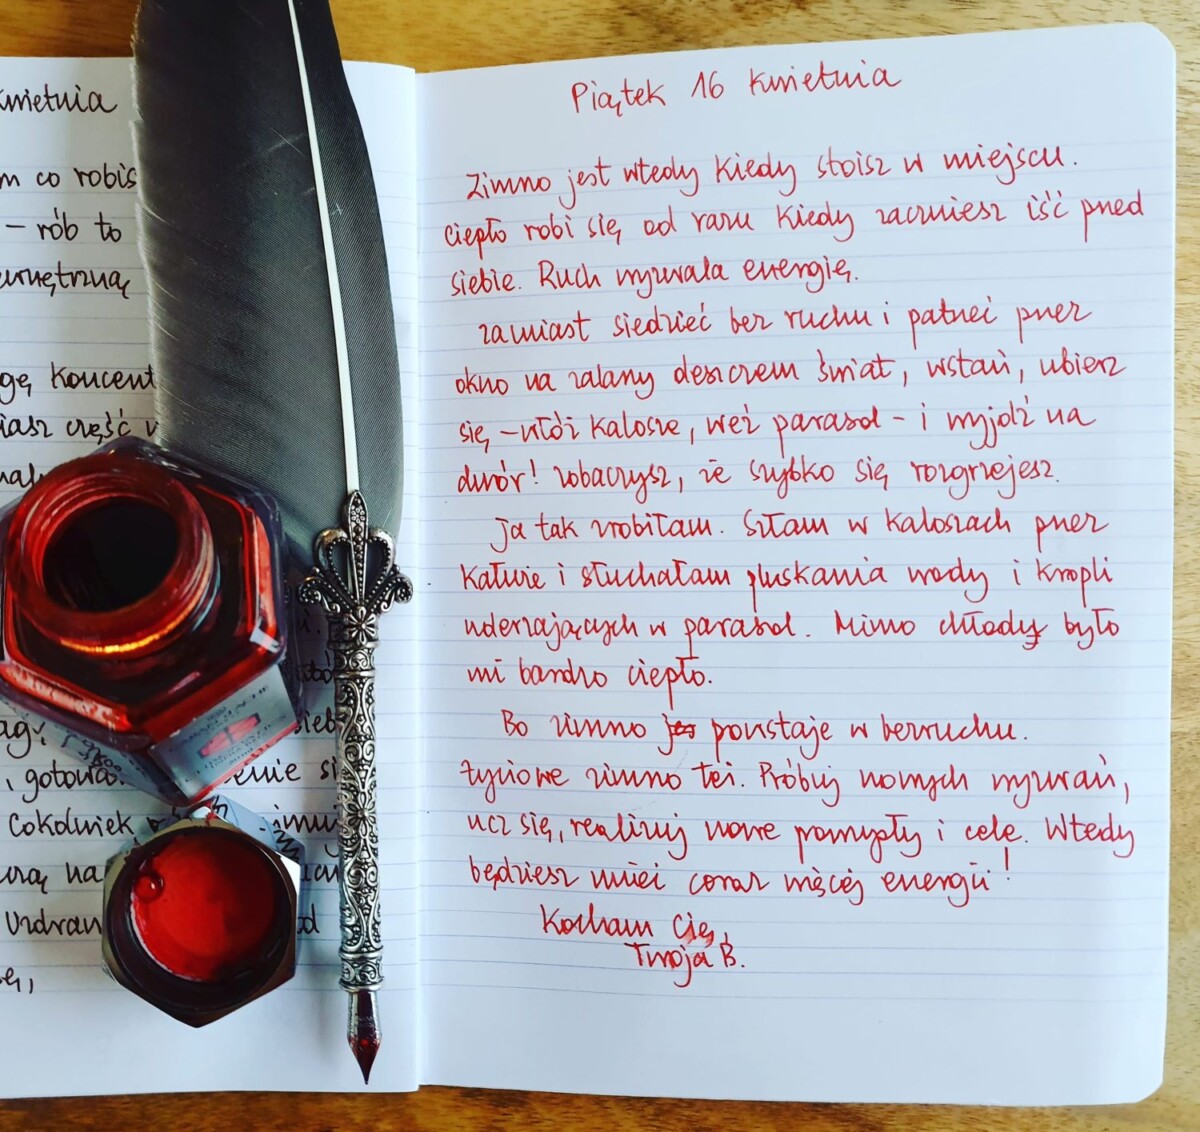 kwietnia
m co robis
– rób to
ewnętrzną
gę koncent
iasz część w
, gotowa.
enie si
Cokolwiek
Piątek 16 kwietnia
Zimno jest wtedy kiedy stoisz w miejscu.
ciepło robi się od razu kiedy zaczniesz iść przed
siebie. Ruch wyzwala energię.
zamiast siedzieć bez ruchu i patrzeć przez
okno na zalany deszczem świat, wstań, ubierz
się – włóż kalosze, weź parasol – i wyjdź na
dwór! zobaczysz, że szybko się rozgrzejesz.
Ja tak zrobiłam. Szłam w kaloszach przez
kałuże i słuchałam pluskania wody i kropli
uderzających w parasol. Mimo chłody było
mi bardzo ciepło.
Bo zimno jes powstaje w bezruchu.
życiowe zimno też. Próbuj nowych wyzwań,
ucz się, realizuj nowe pomysły i cele. Wtedy
będziesz mieć coraz więcej energii!
Kocham Cię,
Twoja B.